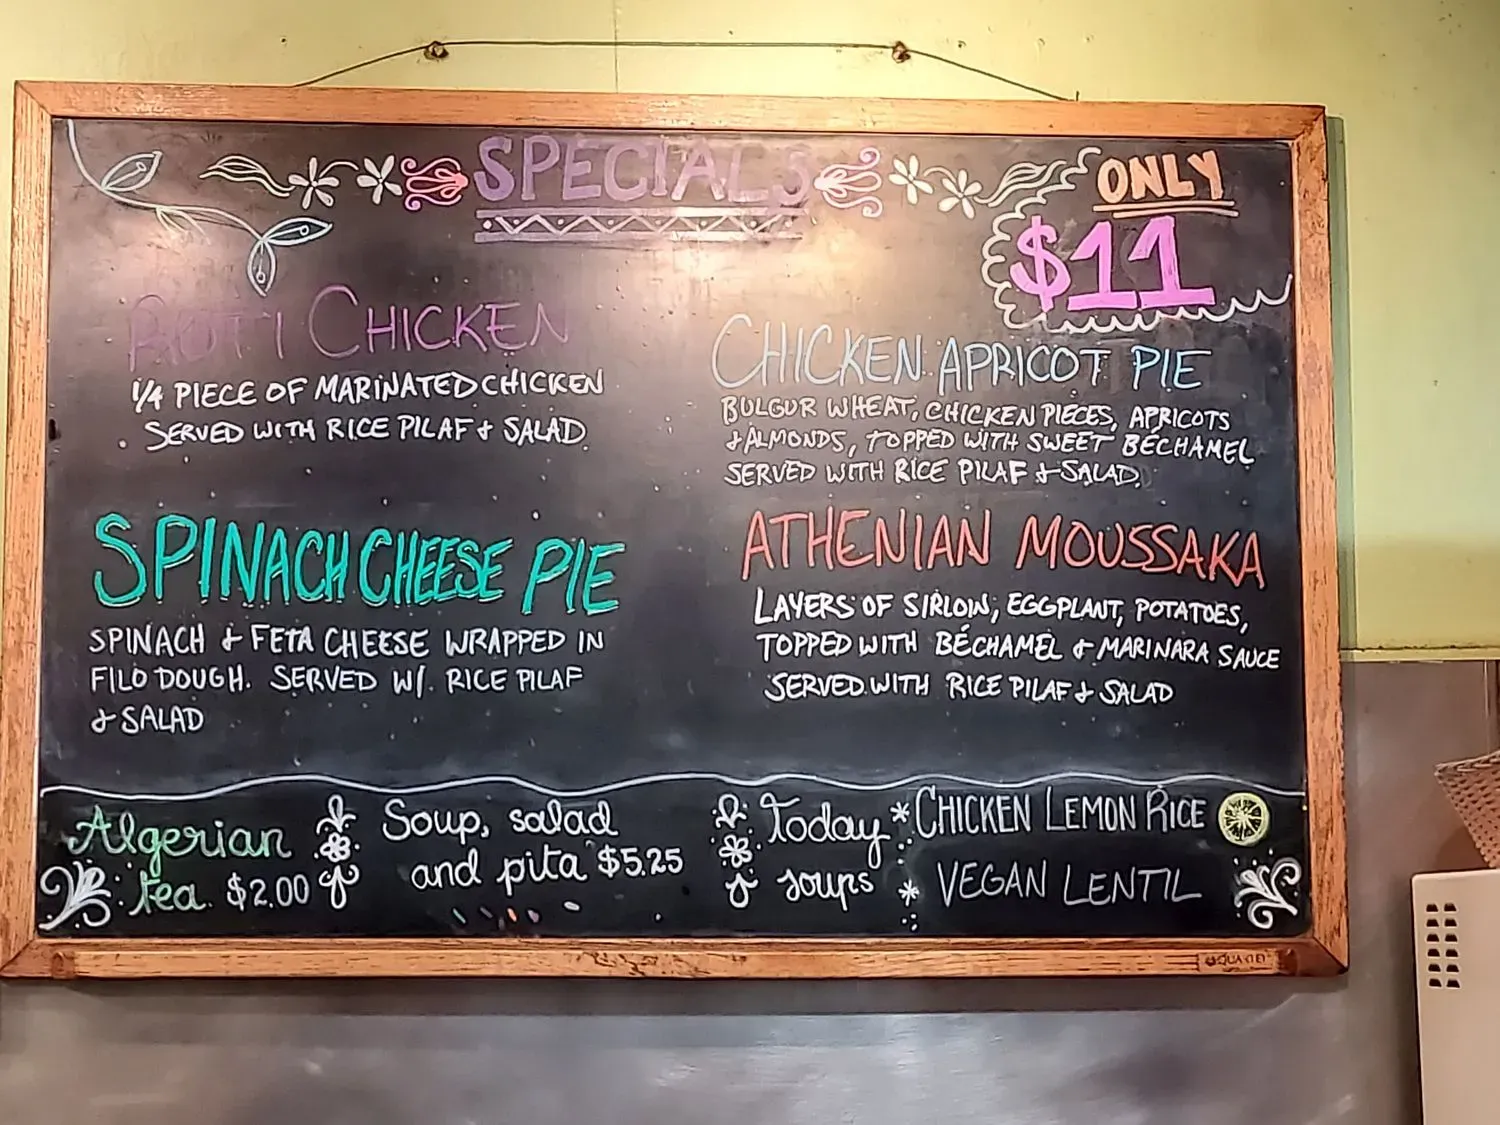 SPECIALS
ONLY
$11
ROTTI CHICKEN
1/4 PIECE OF MARINATED CHICKEN
SERVED WITH RICE PILAF & SALAD
CHICKEN APRICOT PIE
BULGUR WHEAT, CHICKEN PIECES, APRICOTS
& ALMONDS, TOPPED WITH SWEET BÉCHAMEL
SERVED WITH RICE PILAF & SALAD.
SPINACH CHEESE PIE
SPINACH & FETA CHEESE WRAPPED IN
FILO DOUGH. SERVED W/. RICE PILAF
& SALAD
ATHENIAN MOUSSAKA
LAYERS OF SIRLOIN, EGGPLANT, POTATOES,
TOPPED WITH BÉCHAMEL & MARINARA SAUCE
SERVED WITH RICE PILAF & SALAD
Algerian
tea. $2.00
Soup, salad
and pita $5.25
Today
soups
* CHICKEN LEMON RICE
* VEGAN LENTIL
QUARTET